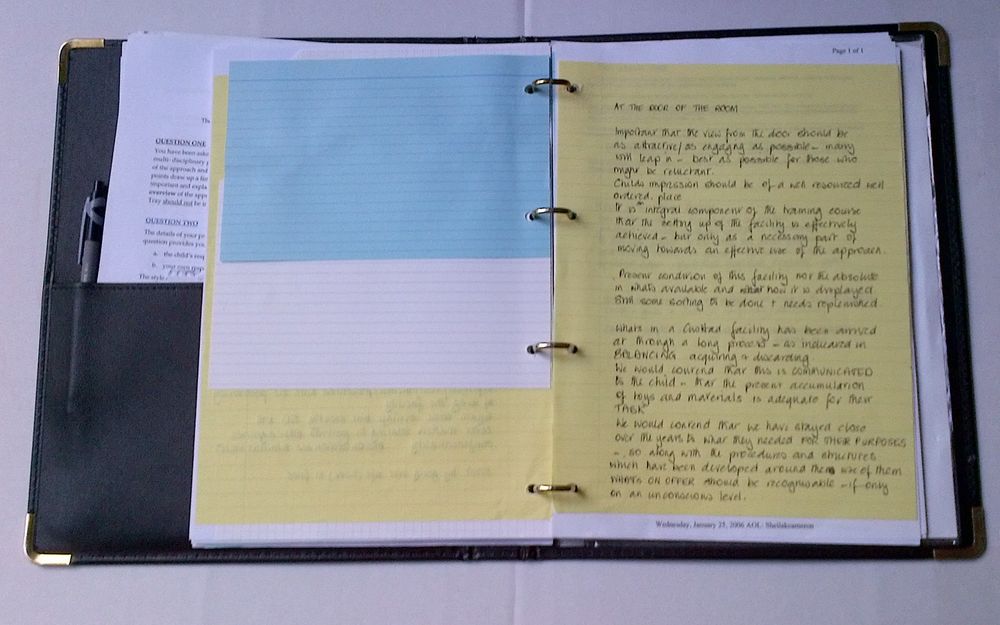 Th
QUESTION ONE
You have been aske
multi- disciplinary p
of the approach and
points draw up a
important and expla
overview of the app
Tray should not be i
QUESTION TWO
The details of your pr
question provides you
a. the child's req
b. your own resp
The style
Page 1 of 1
AT THE DOOR OF THE ROOM
Important that the view from the door should be
as attractive/as engaging as possible - many
will leap in - best as possible for those who
might be reluctant.
Childs impression should be of a well resourced well
ordered place
It is integral component of the training course
that the setting up of the facility is effectively
achieved - but only as a necessary part of
moving towards an effective use of the approach.
Present condition of this facility not the absolute
in whats available and how it is displayed
Still some sorting to be done + needs replenished.
Whats in a facility has been arrived
at through a long process - as indicated in
BALANCING acquiring + discarding.
We would contend that this is COMMUNICATED
to the child - that the present accumulation
of toys and materials is adequate for their
TASK
We would contend that we have stayed close
over the years to what they needed FOR THEIR PURPOSES
- so along with the procedures and structures
which have been developed around them use of them
WHATS ON OFFER should be recognisable - if only
on an unconscious level.
Wednesday, January 25, 2006 AOL: Sheilakcameron